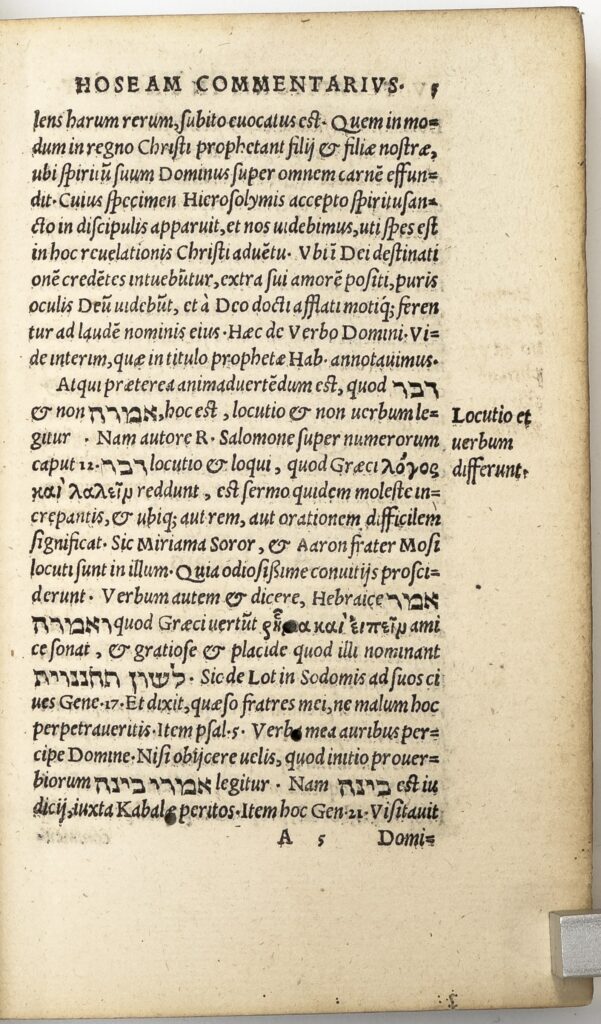 HOSEAM COMMENTARIVS. 5
lens harum rerum, subito euocatus est. Quem in mo=
dum in regno Christi prophetant filij & filiæ nostræ,
ubi spiritũ suum Dominus super omnem carnẽ effun=
dit. Cuius specimen Hierosolymis accepto spiritusan=
cto in discipulis apparuit, et nos uidebimus, uti spes est
in hoc reuelationis Christi aduẽtu. Vbi ĩ Dei destinati
onẽ credẽtes intuebũtur, extra sui amorẽ positi, puris
oculis Deũ uidebũt, et à Deo docti afflati motiq; feren
tur ad laudẽ nominis eius. Hæc de Verbo Domini. Vi=
de interim, quæ in titulo prophetæ Hab. annotauimus.
Atqui præterea animaduertẽdum est, quod דבר
& non אמורה, hoc est, locutio & non uerbum le=
gitur. Nam autore R. Salomone super numerorum
caput 12. דבר locutio & loqui, quod Græci λόγος
καὶ λαλεῖν reddunt, est sermo quidem moleste in=
crepantis, & ubiq; aut rem, aut orationem difficilem
significat. Sic Miriama Soror, & Aaron frater Mosi
locuti sunt in illum. Quia odiosißime conuitijs prosci=
derunt. Verbum autem & dicere, Hebraice אמר
ואמורה quod Græci uertũt ῥῆμα καὶ ειπεῖν ami
ce sonat, & gratiose & placide quod illi nominant
לשון תחננוית. Sic de Lot in Sodomis ad suos ci
ues Gene. 17. Et dixit, quæso fratres mei, ne malum hoc
perpetraueritis. Item psal. 5. Verba mea auribus per=
cipe Domine. Nisi obijcere uelis, quod initio prouer=
biorum אמורי בינה legitur. Nam בינה est iu
dicij, iuxta Kabalæ peritos. Item hoc Gen. 21. Visitauit
A 5 Domi=
Locutio et
uerbum
differunt.